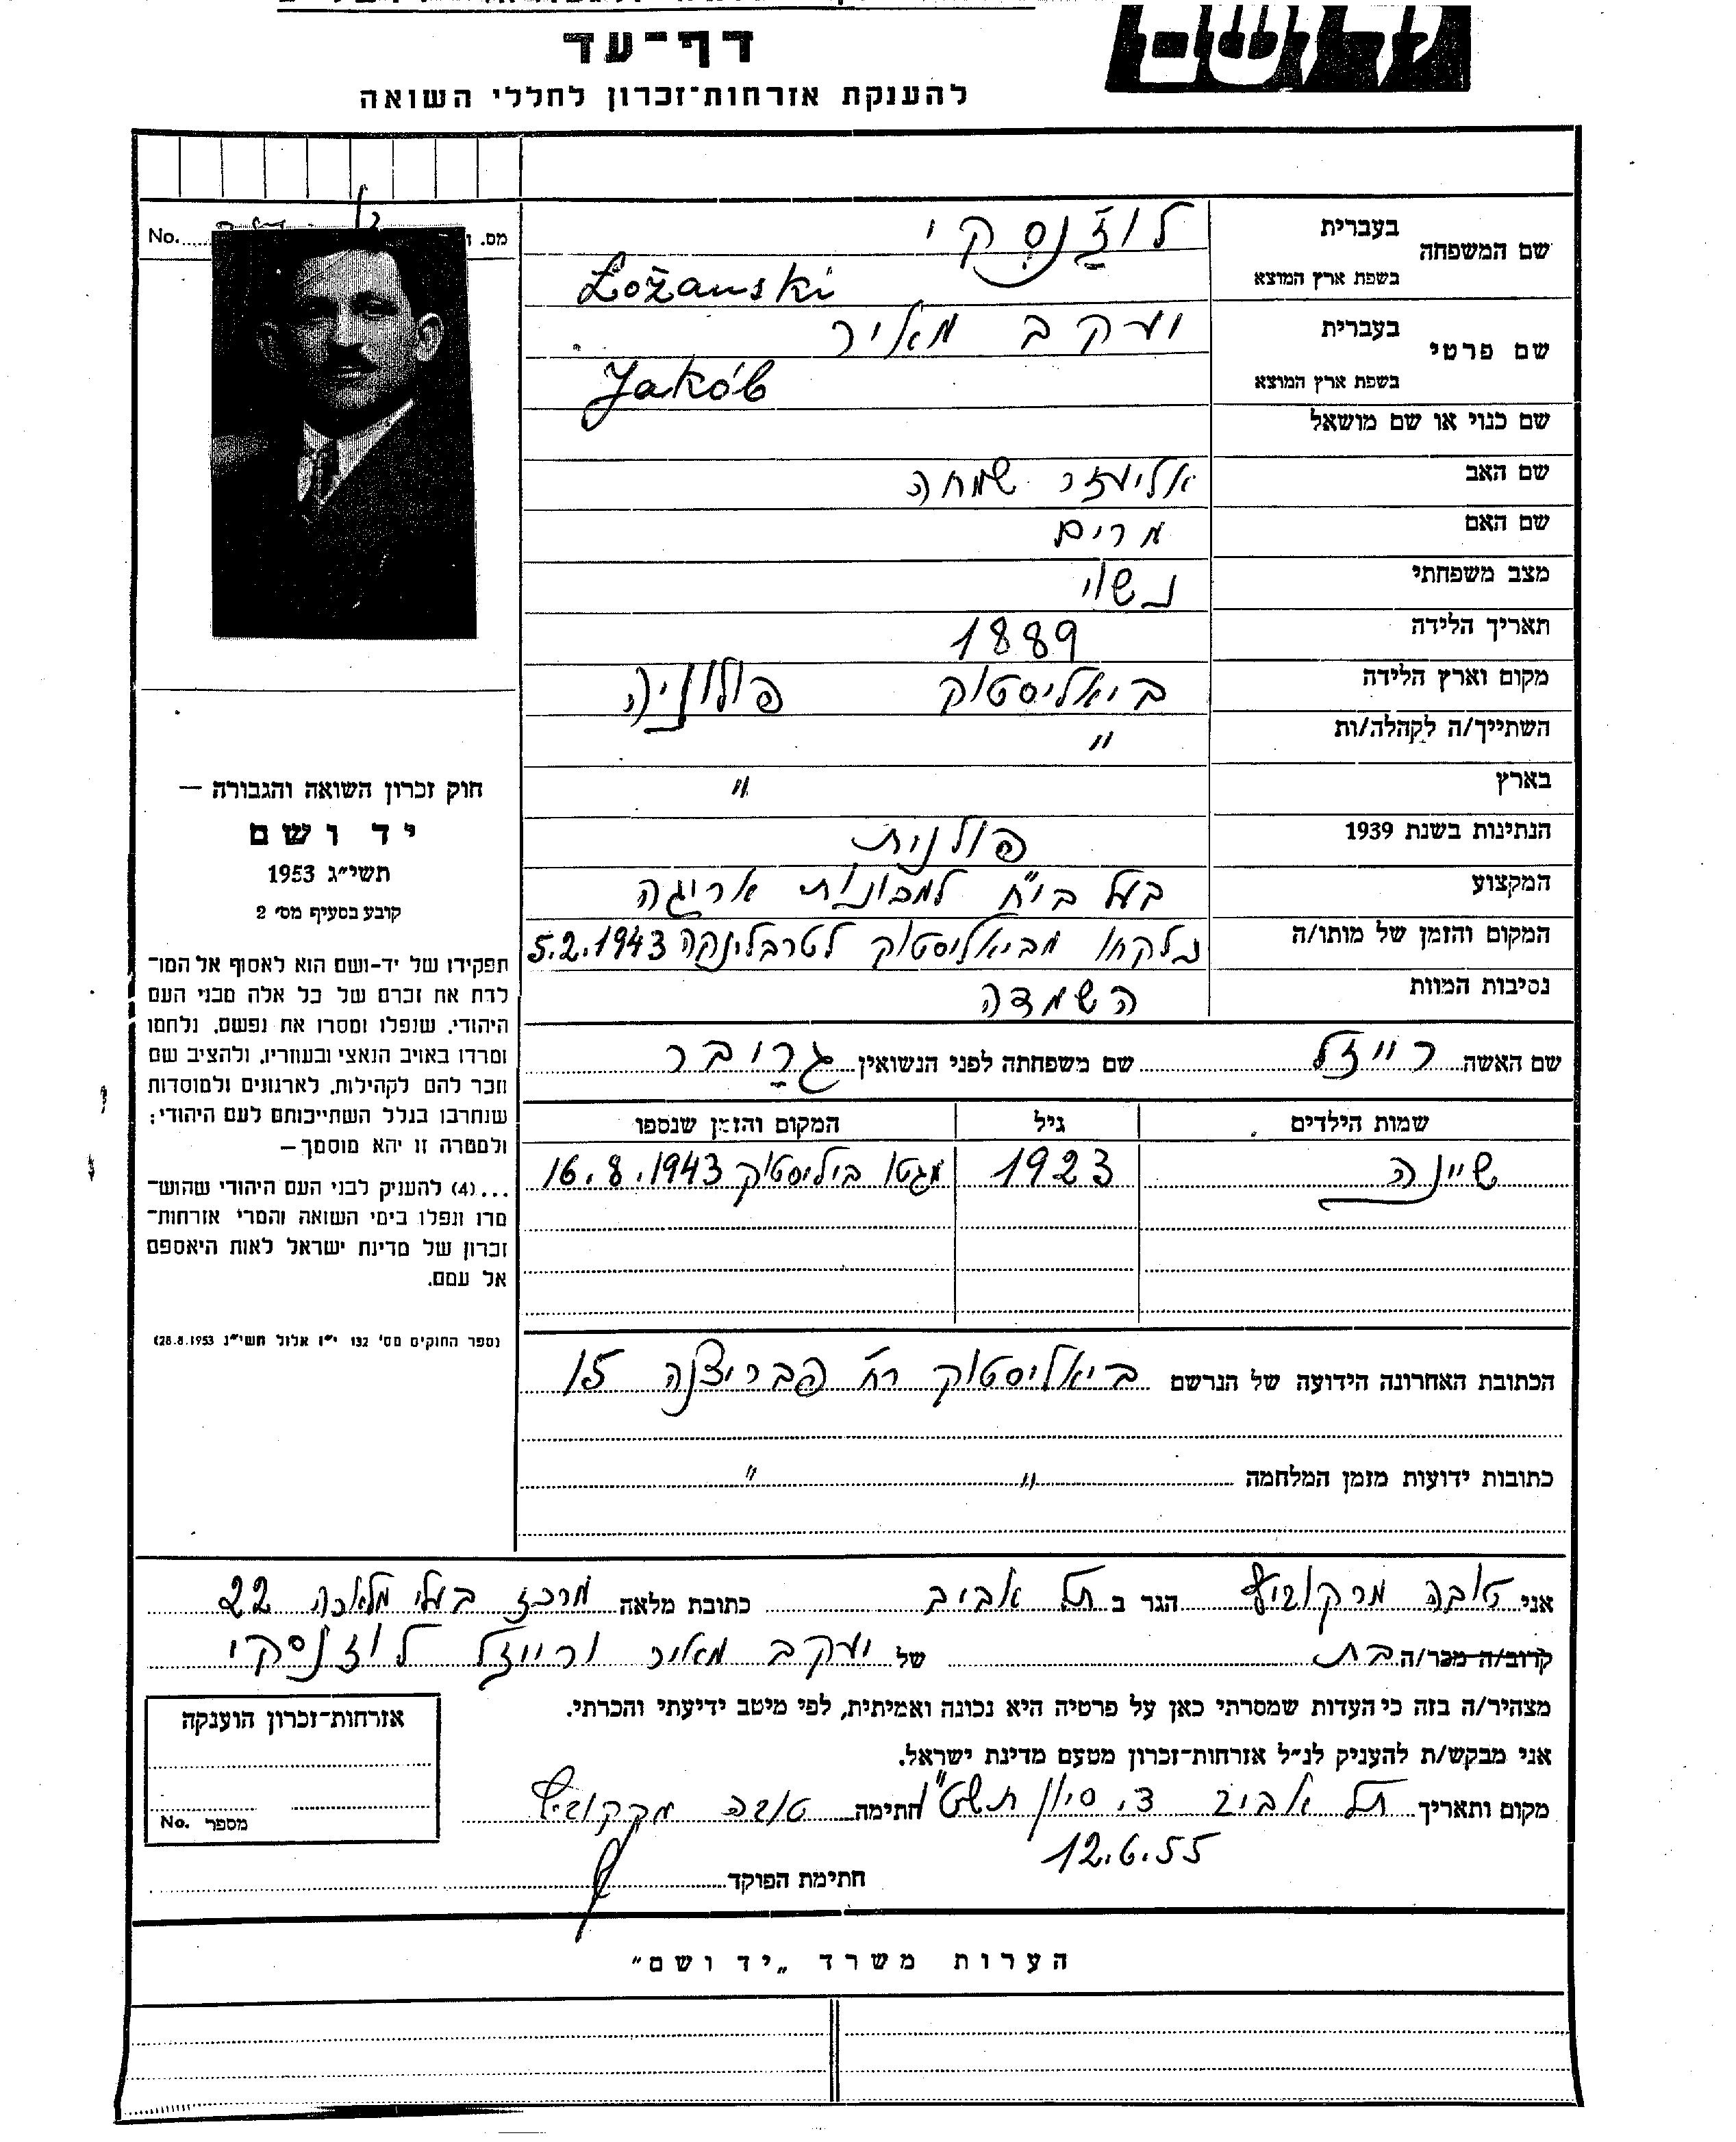 דף־עד
להענקת אזרחות־זכרון לחללי השואה
No. מס.
שם המשפחה
בעברית לוז'נסקי
בשפת ארץ המוצא Łożanski
שם פרטי
בעברית יעקב מאיר
בשפת ארץ המוצא Jakób
שם כנוי או שם מושאל
שם האב אליעזר שמחה
שם האם מרים
מצב משפחתי נשוי
תאריך הלידה 1889
מקום וארץ הלידה ביאליסטוק פולוניה
השתייך/ה לקהלה/ות "
בארץ "
הנתינות בשנת 1939 פולנית
המקצוע בעל בי"ח למכונות אריגה
המקום והזמן של מותו/ה נלקחו מביאליסטוק לטרבלינקה 5.2.1943
נסיבות המוות השמדה
שם האשה רייזל שם משפחתה לפני הנשואין גרובר
שמות הילדים גיל המקום והזמן שנספו
שיינה 1923 מגטו ביליסטוק 16.8.1943
הכתובת האחרונה הידועה של הנרשם ביאליסטוק רח' פבריצ'נה 15
כתובות ידועות מזמן המלחמה " "
חוק זכרון השואה והגבורה –
יד ושם
תשי"ג 1953
קובע בסעיף מס׳ 2
תפקידו של יד-ושם הוא לאסוף אל המו־
לדת את זכרם של כל אלה מבני העם
היהודי, שנפלו ומסרו את נפשם, נלחמו
ומרדו באויב הנאצי ובעוזריו, ולהציב שם
וזכר להם לקהילות, לארגונים ולמוסדות
שנחרבו בגלל השתייכותם לעם היהודי;
ולמטרה זו יהא מוסמך –
...(4) להעניק לבני העם היהודי שהוש־
מדו ונפלו בימי השואה והמרי אזרחות־
זכרון של מדינת ישראל לאות היאספם
אל עמם.
(ספר החוקים מס׳ 132 י"ז אלול תשי"ג 28.8.1953)
אני טובה מרקוביץ הגר ב תל אביב כתובת מלאה מרכז בעלי מלאכה 22
קרוב/ה מכר/ה בת של יעקב מאיר ורייזל לוזנסקי
מצהיר/ה בזה כי העדות שמסרתי כאן על פרטיה היא נכונה ואמיתית, לפי מיטב ידיעתי והכרתי.
אני מבקש/ת להעניק לנ"ל אזרחות־זכרון מטעם מדינת ישראל.
מקום ותאריך תל אביב סיון תשט"ו חתימה טובה מרקוביץ
12.6.55
חתימת הפוקד
אזרחות־זכרון הוענקה
מספר No.
הערות משרד „יד ושם"